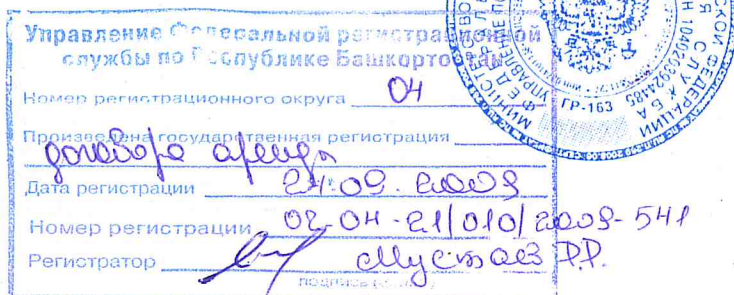 Управление Федеральной регистрационной
службы по Республике Башкортостан
Номер регистрационного округа 04
Произведена государственная регистрация
договора аренды
Дата регистрации 24.09.2009
Номер регистрации 02-04-21/010/2009-541
Регистратор Р.Р.
ГР-163